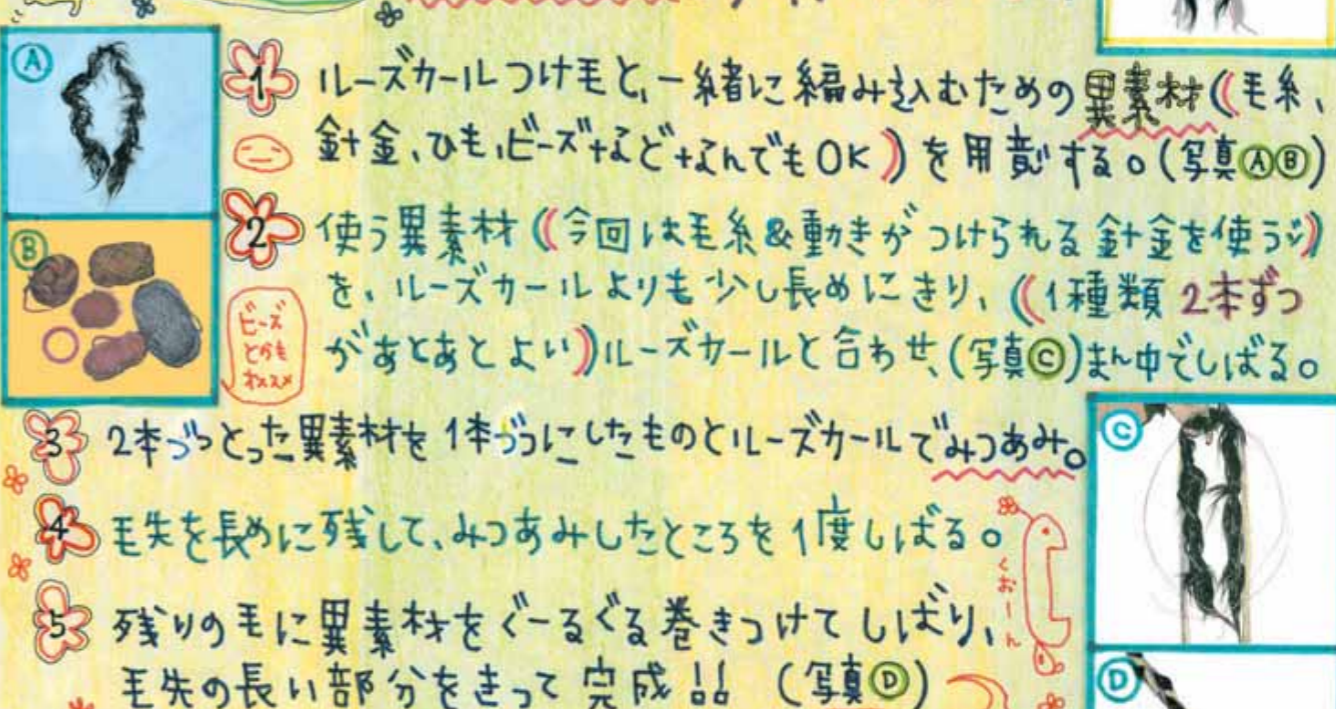 A
1 ルーズカールつけ毛と、一緒に編み込むための異素材((毛糸、
針金、ひも、ビーズなどなんでもOK))を用意する。(写真ⒶⒷ)
B
2 使う異素材((今回は毛糸&動きがつけられる針金を使うジ))
を、ルーズカールよりも少し長めにきり、((1種類 2本ずつ
があとあとよい))ルーズカールと合わせ、(写真Ⓒ)まん中でしばる。
ビーズ
とかも
オススメ
3 2本づつとった異素材を1本づつにしたものとルーズカールでみつあみ。
C
4 毛先を長めに残して、みつあみしたところを1度しばる。
くおーん
5 残りの毛に異素材をぐーるぐる巻きつけてしばり、
毛先の長い部分をきって完成!! (写真Ⓓ)
D